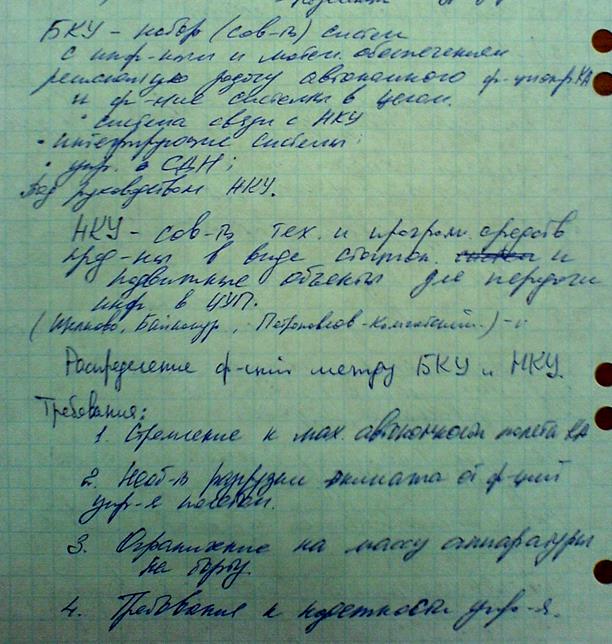 БКУ - набор (сов-ть) систем
с инф-ным и матем. обеспечением
решающую задачу автономного ф-ционир КА
и ф-ние системы в целом.
• система связи с НКУ
• интегрирующие системы;
• упр. СДН;
Под руководством НКУ.
НКУ - сов-ть тех. и програм. средств
пред-ны в виде статич. и
подвижные объекты для передачи
инф в ЦУП.
(Щелково, Байконур, Петропавлов-Камчатский.)
Распределение ф-ций между БКУ и НКУ.
Требования:
1. Стремление к мах. автономности полета КА
2. Необ-ть разгрузки экипажа от ф-ций
упр-я полетом.
3. Ограничение на массу аппаратуры
на борту.
4. Требования к надежности упр-я.